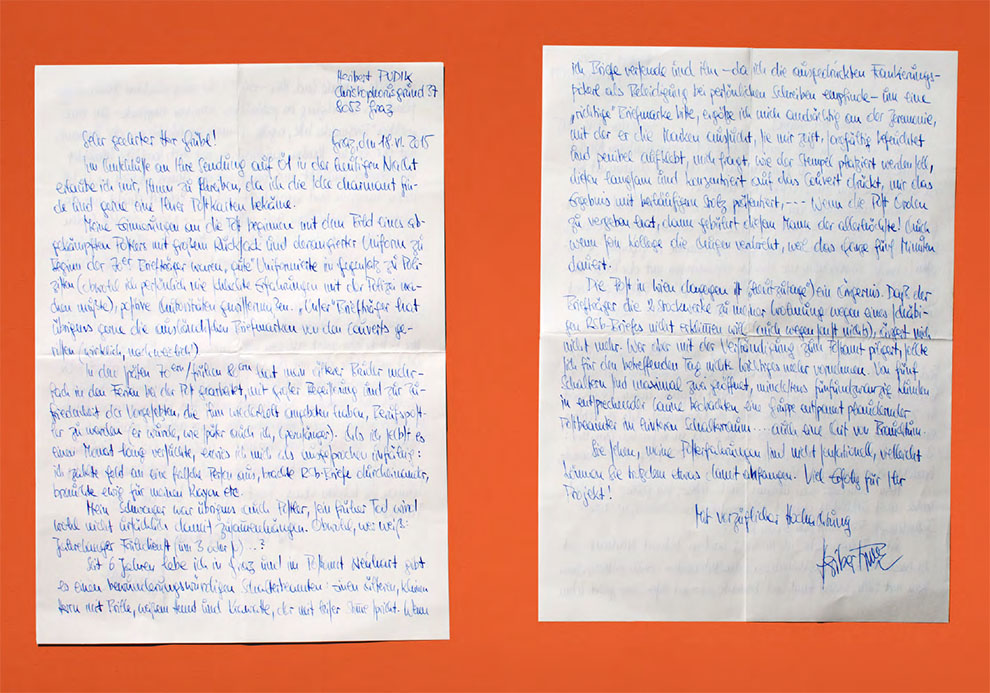 Heribert PUDIK
Christophorusgrund 37
8053 Graz
Sehr geehrter Herr
Graz, den 18. VI. 2015
Im Anschluße an Ihre Sendung auf Ö1 in der heutigen Nacht
erlaube ich mir, Ihnen zu schreiben, da ich die Idee charmant fin-
de und gerne eine Ihrer Postkarten bekäme.
Meine Erinnerungen an die Post beginnen mit dem Bild eines ab-
gekämpften Postlers mit großem Rucksack und derangierter Uniform zu
Beginn der 70er. Briefträger waren „gute“ Uniformierte im Gegensatz zu Poli-
zisten (obwohl ich persönlich nie schlechte Erfahrungen mit der Polizei ma-
chen mußte), positive Autoritäten gewissermaßen. „Unser“ Briefträger hat
übrigens gerne die ausländischen Briefmarken von den Couverts ge-
rissen (wirklich, nachweislich!)
In den späten 70ern/frühen 80ern hat mein älterer Bruder mehr-
fach in den Ferien bei der Post gearbeitet, mit großer Begeisterung und zur Zu-
friedenheit der Vorgesetzten, die ihm wiederholt angeboten haben, Berufspost-
ler zu werden (er wurde, wie später auch ich, Opernsänger). Als ich selbst es
einen Monat lang versuchte, erwies ich mich als ausgesprochen unfähig:
ich zahlte Geld an eine falsche Person aus, brachte RSb-Briefe durcheinander,
brauchte ewig für meinen Rayon etc.
Mein Schwager war übrigens auch Postler, sein früher Tod wird
wohl nicht ursächlich damit zusammenhängen. Obwohl, wer weiß:
Jahrelanger Frühdienst (um 3 oder so) ...?
Seit 6 Jahren lebe ich in Graz und im Postamt Neuhart gibt
es einen bewunderungswürdigen Schalterbeamten: einen älteren, kleinen
Herrn mit Brille, weißem Hemd und Krawatte, der mit leiser Stimme spricht. Wenn
ich Briefe versende und ihn – da ich die ausgedruckten Frankierungs-
pickerl als Beleidigung bei persönlichen Schreiben empfinde – um eine
„richtige“ Briefmarke bitte, ergötze ich mich andächtig an der Zeremonie,
mit der er die Marken aussucht, sie mir zeigt, sorgfältig befeuchtet
und penibel aufklebt, mich fragt, wie der Stempel platziert werden soll,
diesen langsam und konzentriert auf das Couvert drückt, mir das
Ergebnis mit beiläufigem Stolz präsentiert, --- Wenn die Post Orden
zu vergeben hat, dann gebührt diesem Mann der allerhöchste! Auch
wenn sein Kollege die Augen verdreht, weil das Ganze fünf Minuten
dauert.
Die Post in Wien dagegen ist (heutzutage) ein Ärgernis. Daß der
Briefträger die 2 Stockwerke zu meiner Wohnung wegen eines schäbi-
gen RSb-Briefes nicht erklimmen will (auch wegen sonst nichts), ärgert mich
nicht mehr. Wer aber mit der Verständigung zum Postamt pilgert, sollte
sich für den betreffenden Tag nichts Wichtiges mehr vornehmen. Von fünf
Schaltern sind maximal zwei geöffnet, mindestens fünfundzwanzig Kunden
in entsprechender Laune beobachten eine Gruppe entspannt plaudernder
Postbeamter im hinteren Schalterraum ... auch eine Art von Brauchtum.
Sie sehen, meine Posterfahrungen sind nicht sensationell, vielleicht
können Sie trotzdem etwas damit anfangen. Viel Erfolg für Ihr
Projekt!
Mit vorzüglicher Hochachtung